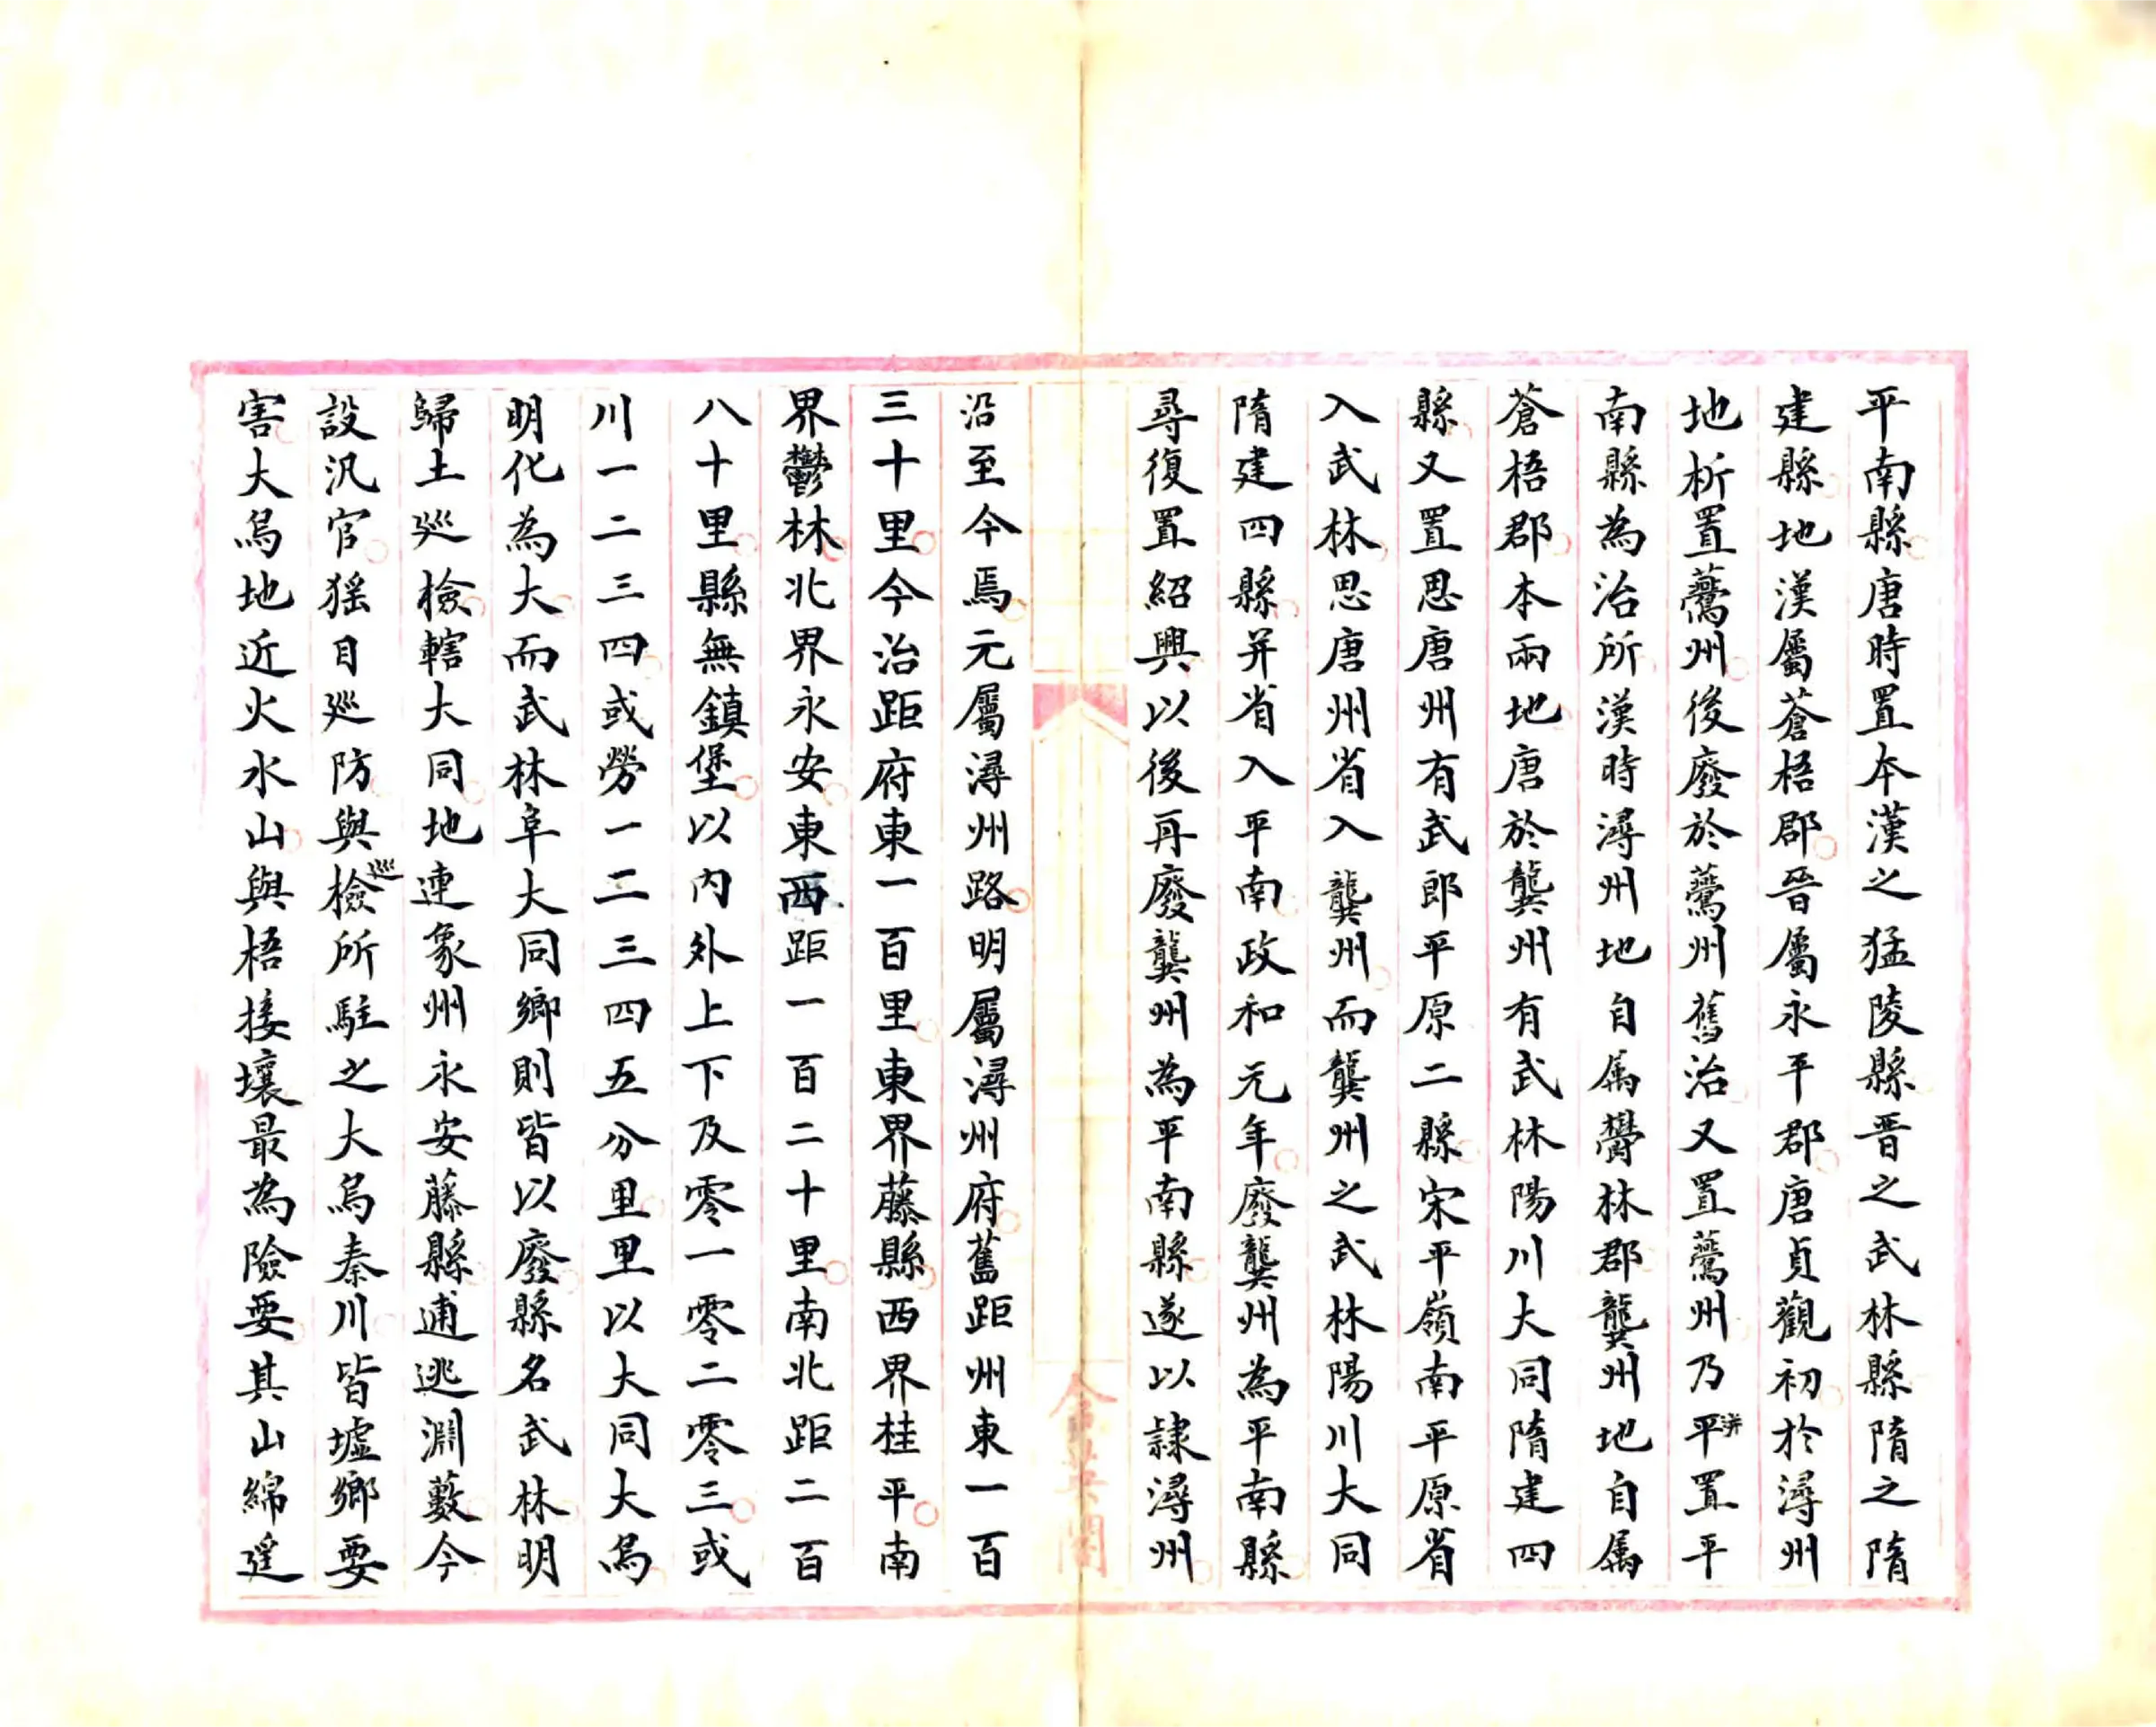 平南縣唐時置本漢之猛陵縣晋之武林縣隋之隋
建縣地漢屬蒼梧郡晉屬永平郡唐貞觀初於潯州
地析置鷰州後廢於鷰州舊治又置鷰州乃平并置平
南縣為治所漢時潯州地自属欝林郡龔州地自属
蒼梧郡本兩地唐於龔州有武林陽川大同隋建四
縣又置思唐州有武郎平原二縣宋平嶺南平原省
入武林思唐州省入龔州而龔州之武林陽川大同
隋建四縣并省入平南政和元年廢龔州為平南縣
尋復置紹興以後再廢龔州為平南縣遂以隷潯州
沿至今焉元屬潯州路明屬潯州府舊距州東一百
三十里今治距府東一百里東界藤縣西界桂平南
界鬱林北界永安東西距一百二十里南北距二百
八十里縣無鎮堡以内外上下及零一零二零三或
川一二三四或勞一二三四五分里里以大同大烏
明化為大而武林阜大同鄉則皆以廢縣名武林明
歸土巡檢轄大同地連象州永安藤縣逋逃淵藪今
設汛官猺目巡防與巡檢所駐之大烏秦川皆墟鄉要
害大烏地近火水山與梧接壤最為險要其山綿遥